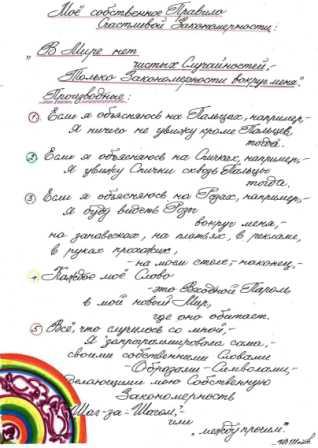 Моё собственное Правило
Счастливой Закономерности:
"В Мире нет
чистых Случайностей,-
Только Закономерности вокруг меня."
Производные:
① Если я объясняюсь на Пальцах, например,-
Я ничего не увижу кроме Пальцев,
тогда.
② Если я объясняюсь на Спичках, например,-
Я увижу Спички сквозь Пальцы
тогда.
③ Если я объясняюсь на Розах, например,-
Я буду видеть Розы
вокруг меня,-
на занавесках, на платьях, в рекламе,
в руках прохожих,-
на моём столе,- наконец,-
4 Каждое моё Слово
-это Входной Пароль
в мой новый Мир,
где оно обитает.
⑤ Всё, что случилось со мной,-
Я запрограммировала сама,-
своими собственными Словами
-Образами-Символами,-
делающими мою Собственную
Закономерность
"Шаг-за-Шагом,"-
или
"между прочим".